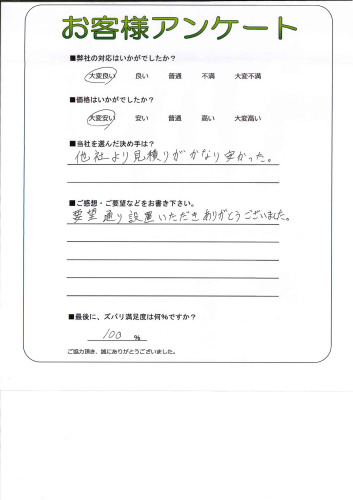 お客様アンケート
■弊社の対応はいかがでしたか？
大変良い 良い 普通 不満 大変不満
■価格はいかがでしたか？
大変安い 安い 普通 高い 大変高い
■当社を選んだ決め手は？
他社より見積りがかなり安かった。
■ご感想・ご要望などをお書き下さい。
要望通り設置いただきありがとうございました。
■最後に、ズバリ満足度は何％ですか？
100 ％
ご協力頂き、誠にありがとうございました。